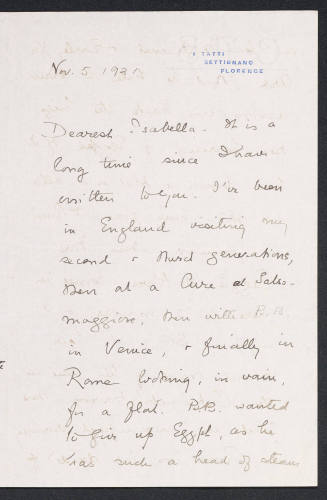 I TATTI
SETTIGNANO
FLORENCE
Nov. 5 1921
Dearest Isabella. It is a
long time since I have
written to you. I've been
in England visiting my
second & third generations,
then at a Cure at Salso-
maggiore, then with B.B.
in Venice, & finally in
Rome looking, in vain,
for a flat. B.B. wanted
to give up Egypt, as he
has such a head of steam